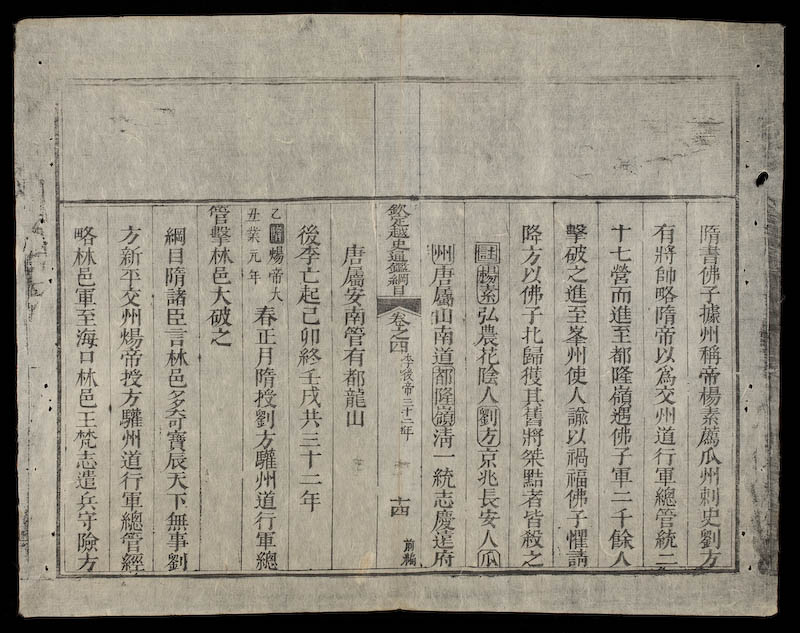 隋書佛子據州稱帝楊素薦瓜州刺史劉方
有將帥略隋帝以爲交州道行軍總管統二
十七營而進至都隆嶺遇佛子軍二千餘人
擊破之進至峯州使人諭以禍福佛子懼請
降方以佛子北歸獲其舊將桀黠者皆殺之
註楊素弘農花陰人劉方京兆長安人瓜
州唐屬山南道都隆嶺清一統志慶遠府
欽定越史通鑑綱目 卷之四 李後帝三十二年 十四 前編
唐屬安南管有都龍山
後李亡起己卯終壬戌共三十二年
乙丑隋煬帝大業元年 春正月隋授劉方驩州道行軍總
管擊林邑大破之
綱目隋諸臣言林邑多奇寶辰天下無事劉
方新平交州煬帝授方驩州道行軍總管經
略林邑軍至海口林邑王梵志遣兵守險方